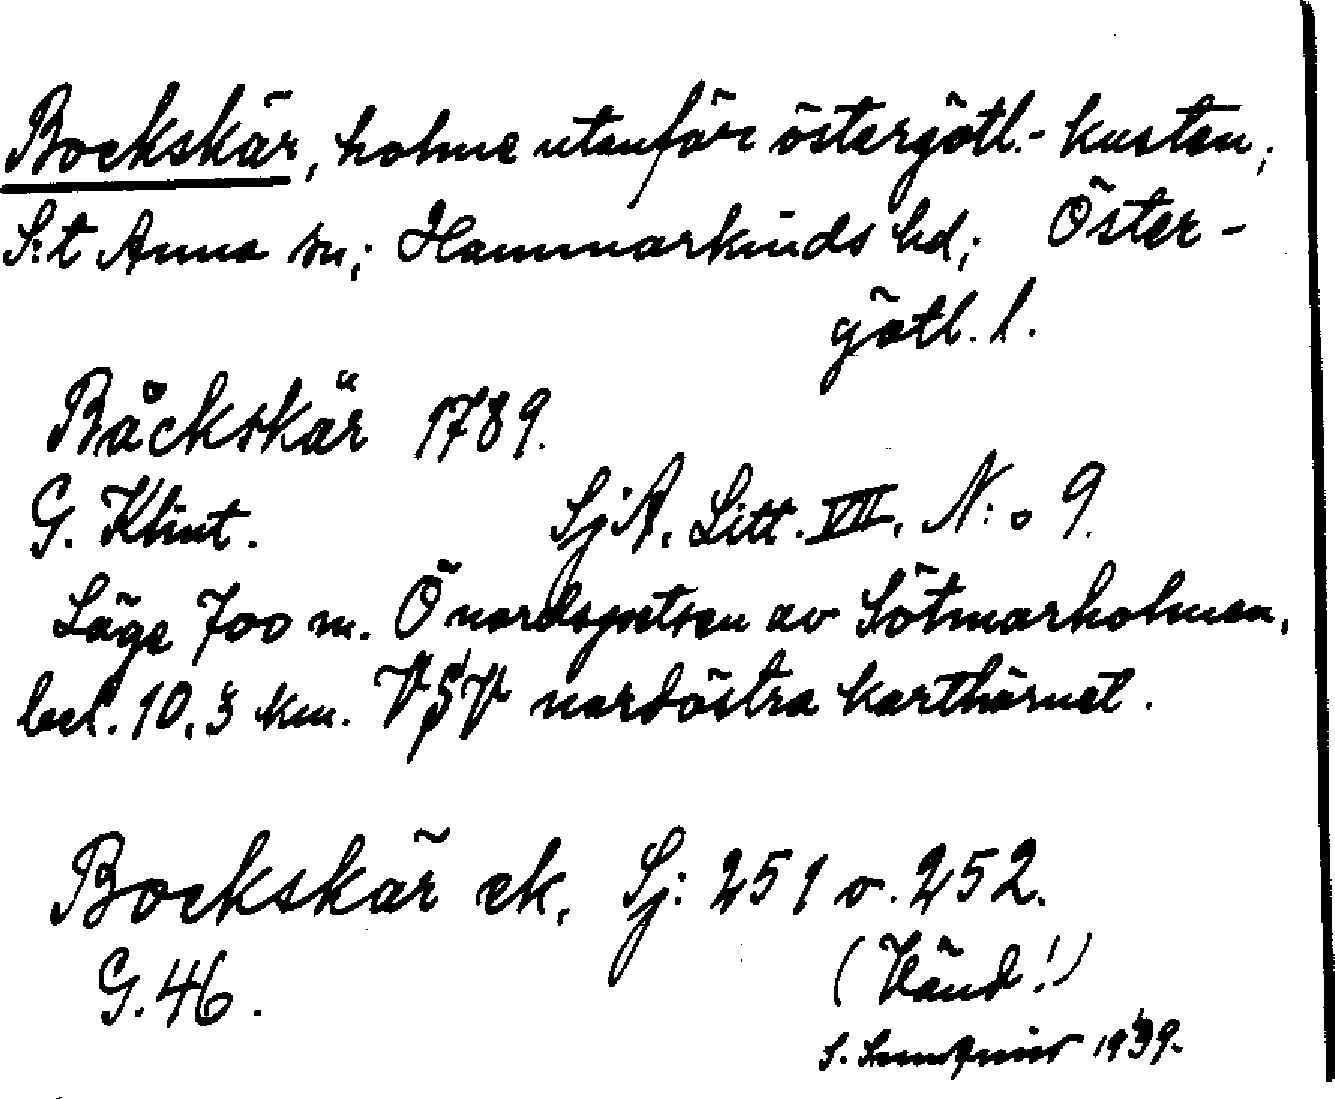 Bockskär, holme utanför östergötl.- kusten;
S:t Anna sn; Hammarkinds hd; Öster-
götl. l.
Båckskär 1789.
G. Klint. SjA. Litt. VII. N:o 9.
Läge 700 m. Ö nordspetsen av Sötmarholmen,
bel. 10,3 km. VSV nordöstra karthörnet.
Bockskär ek. Sj: 251 o. 252.
G. 46.
(Vänd!)
S. 1939.